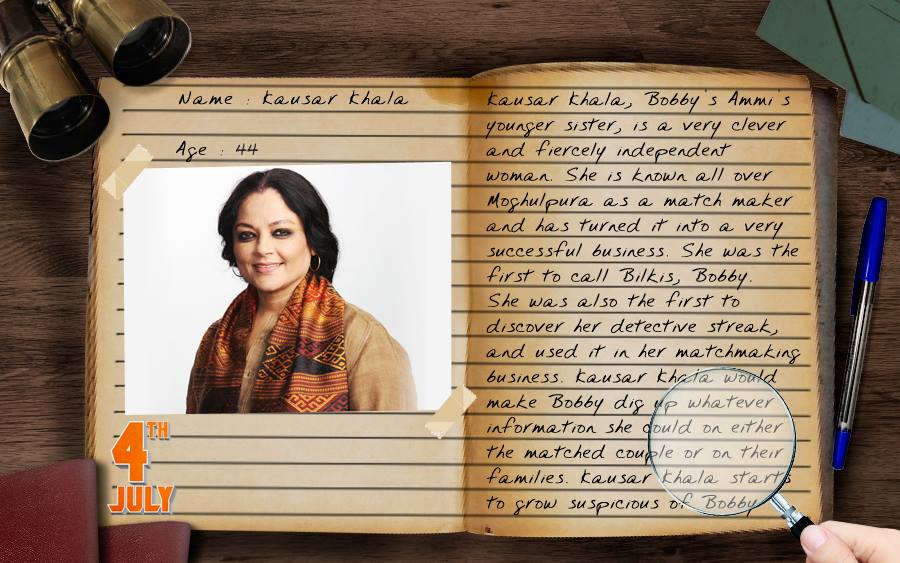 Name : Kausar Khala
Age : 44
4TH
JULY
Kausar Khala, Bobby's Ammi's
younger sister, is a very clever
and fiercely independent
woman. She is known all over
Moghulpura as a match maker
and has turned it into a very
successful business. She was the
first to call Bilkis, Bobby.
She was also the first to
discover her detective streak,
and used it in her matchmaking
business. Kausar Khala would
make Bobby dig up whatever
information she could on either
the matched couple or on their
families. Kausar Khala starts
to grow suspicious of Bobby